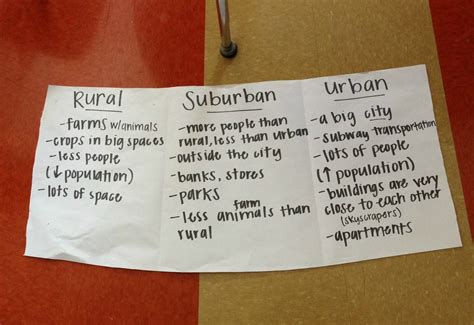 Rural
-farms w/animals
-crops in big spaces
-less people
(↓ population)
-lots of space
Suburban
-more people than
rural, less than urban
-outside the city
-banks, stores
-parks
-less farm animals than
rural
Urban
-a big city
-subway transportation
-lots of people
(↑ population)
-buildings are very
close to each other
(skyscrapers)
-apartments